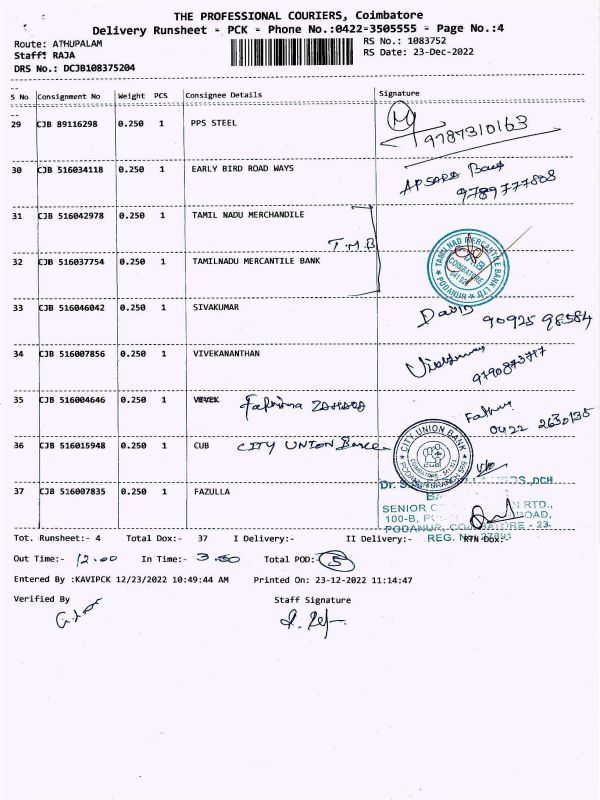 THE PROFESSIONAL COURIERS, Coimbatore
Delivery Runsheet = PCK = Phone No.:0422-3505555 = Page No.:4
Route: ATHUPALAM RS No.: 1083752
Staff: RAJA RS Date: 23-Dec-2022
DRS No.: DCJB108375204
S No Consignment No Weight PCS Consignee Details Signature
29 CJB 89116298 0.250 1 PPS STEEL 9787310163
30 CJB 516034118 0.250 1 EARLY BIRD ROAD WAYS APSARA 9789777808
31 CJB 516042978 0.250 1 TAMIL NADU MERCHANDILE
T.M.B
32 CJB 516037754 0.250 1 TAMILNADU MERCANTILE BANK
TAMILNAD MERCANTILE BANK LTD PODANUR COIMBATORE
33 CJB 516046042 0.250 1 SIVAKUMAR David 90925 98584
34 CJB 516007856 0.250 1 VIVEKANANTHAN
35 CJB 516004646 0.250 1 VEVEK Fathima 0422 2630135
36 CJB 516015948 0.250 1 CUB CITY UNION
CITY UNION BANK
37 CJB 516007835 0.250 1 FAZULLA
Dr. DCH
SENIOR RTD.,
100-B, ROAD,
PODANUR, COIMBATORE - 23.
REG. No
Tot. Runsheet:- 4 Total Dox:- 37 I Delivery:- II Delivery:- RTN Dox:-
Out Time:- 12.00 In Time:- 3.50 Total POD: 5
Entered By :KAVIPCK 12/23/2022 10:49:44 AM Printed On: 23-12-2022 11:14:47
Verified By Staff Signature